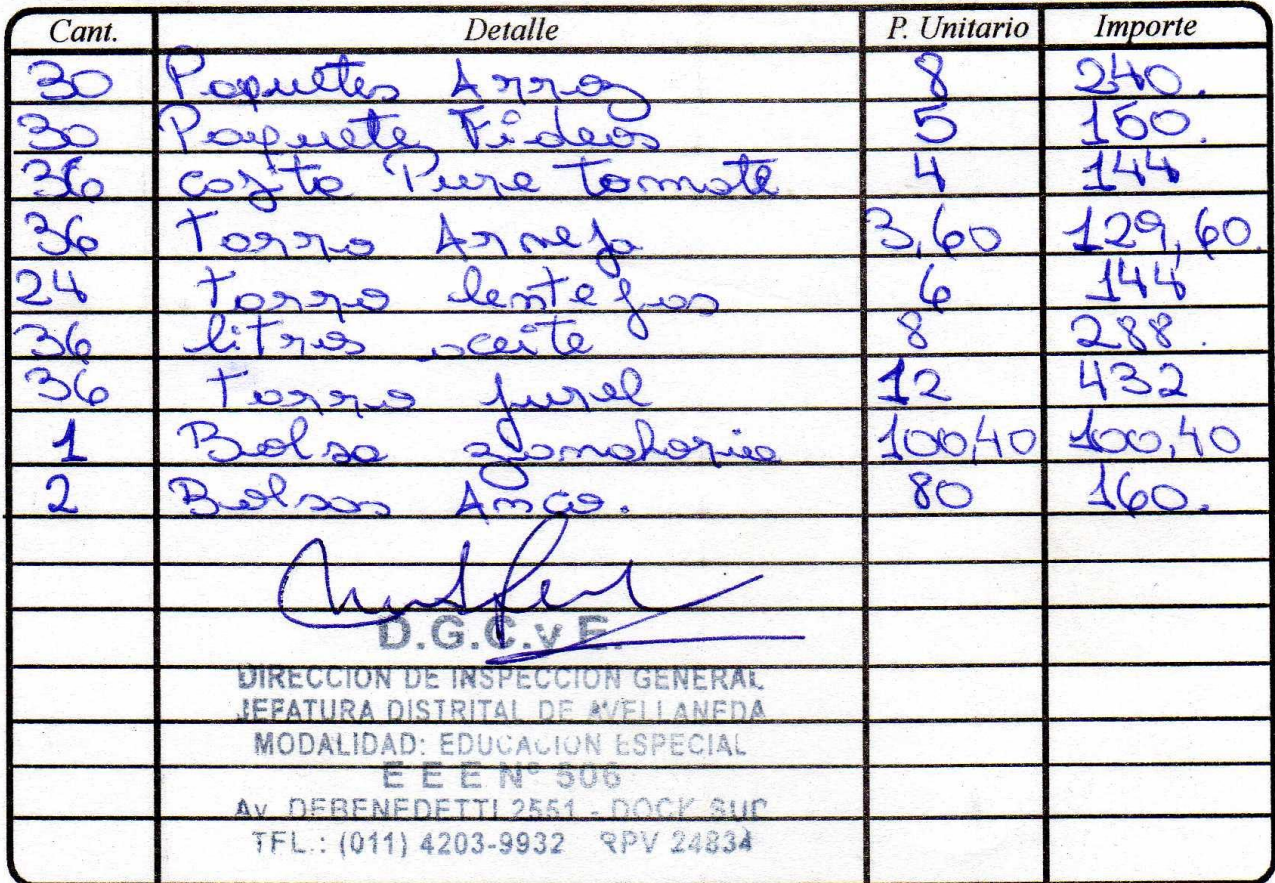 Cant. Detalle P. Unitario Importe
30 Paquetes Arroz 8 240.
30 Paquete Fideos 5 150.
36 cajita Pure tomate 4 144
36 Tarro Arneja 3,60 129,60.
24 tarro lentejas 6 144
36 litros aceite 8 288.
36 tarro jurel 12 432
1 Bolsa zanahoria 100,40 100,40
2 Bolsas Anco. 80 160.
D.G.C.y E.
DIRECCION DE INSPECCION GENERAL
JEFATURA DISTRITAL DE AVELLANEDA
MODALIDAD: EDUCACION ESPECIAL
E E E Nº 506
Av. DEBENEDETTI 2551 - DOCK SUD
TEL.: (011) 4203-9932 RPV 24834